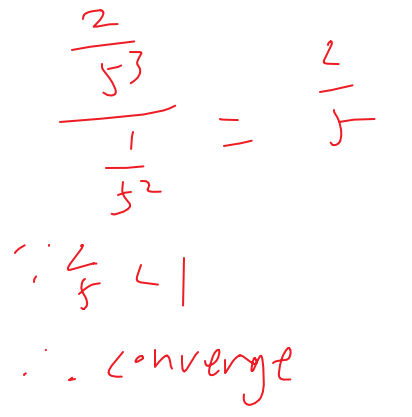 \frac{\frac{2}{5^3}}{\frac{1}{5^2}} = \frac{2}{5}
∵ \frac{2}{5} < 1
∴ converge